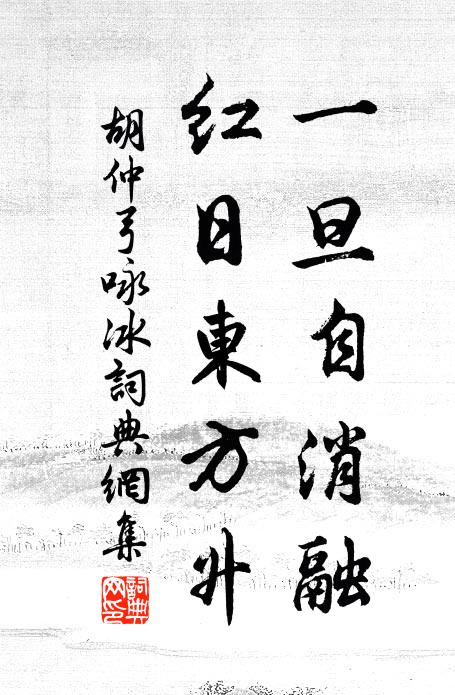 一旦自消融
紅日東方升
胡仲弓咏冰詞典網集
詞典網印